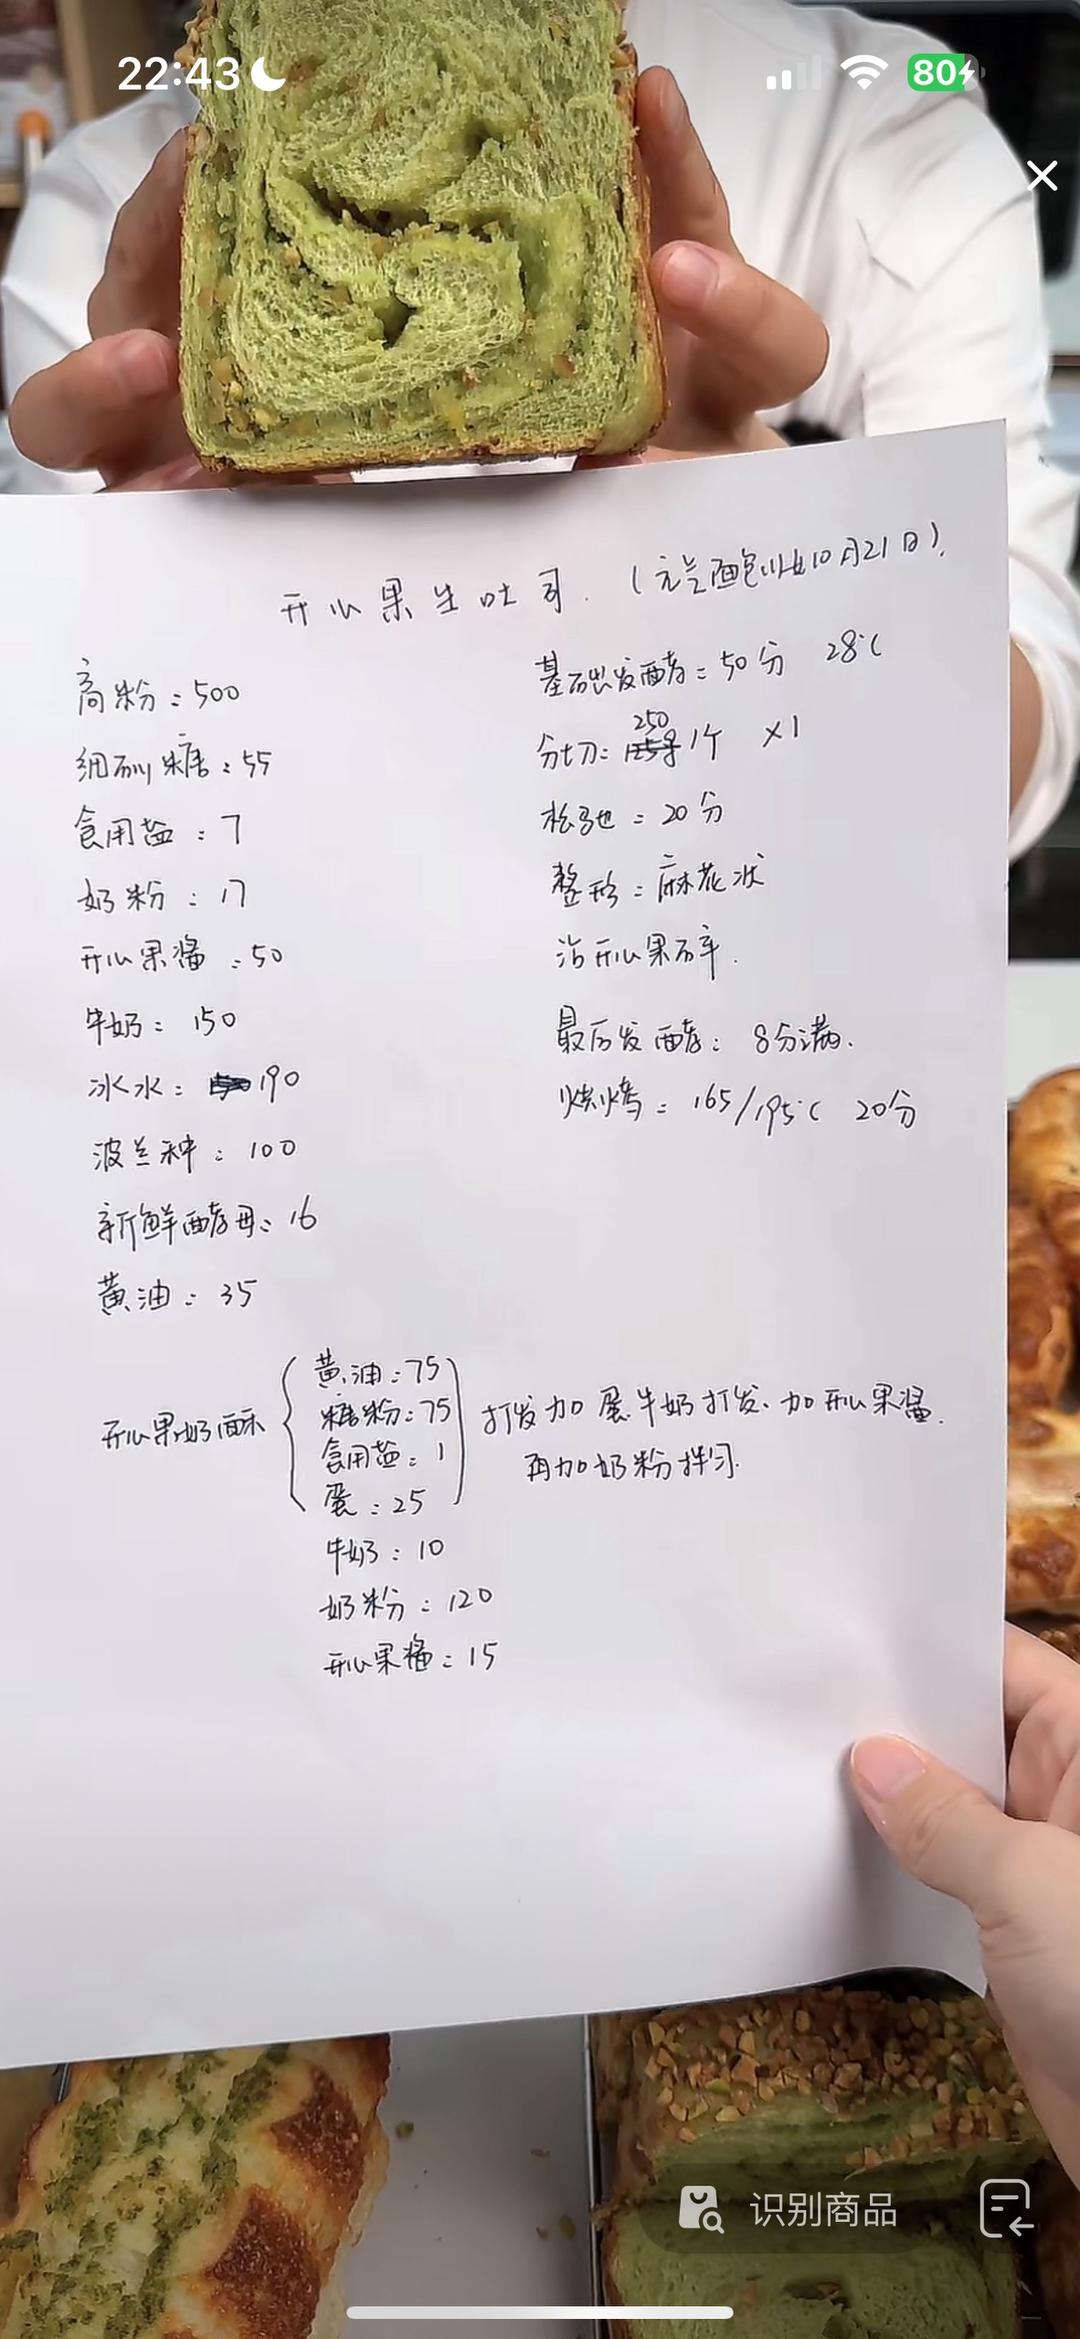 22:43
80
开心果生吐司.(元兰面包川al10月21日).
高粉:500
细砂糖:55
食用盐:7
奶粉:17
开心果酱:50
牛奶:150
冰水:190
波兰种:100
新鲜酵母:16
黄油:35
基础发酵:50分 28℃
分切:250 1个 ×1
松弛:20分
整形:麻花状
沾开心果碎.
最后发酵:8分满.
烘烤:165/195℃ 20分
开心果奶酥
黄油:75
糖粉:75
食用盐:1
蛋:25
牛奶:10
奶粉:120
开心果酱:15
打发加蛋、牛奶打发、加开心果酱.
再加奶粉拌匀.
识别商品